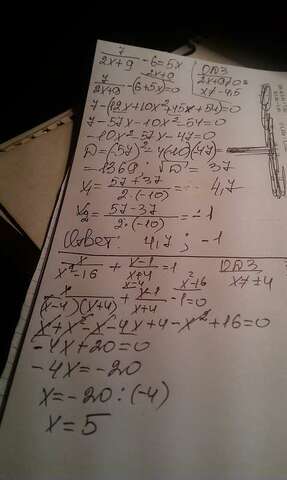 7/(2x+9) - 6 = 5x | ОДЗ
2x+9≠0
x≠-4,5
7/(2x+9) - (6+5x)^(2x+9) = 0
7-(12x+10x²+45x+54)=0
7-57x-10x²-54=0
-10x²-57x-47=0
D=(-57)²-4(-10)(-47)=
=1369; √D = 37
x₁ = (57+37)/(2·(-10)) = -4,7
x₂ = (57-37)/(2·(-10)) = -1
Ответ: 4,7 ; -1
x/(x²-16) + (x-1)/(x+4) = 1 | ОДЗ
x≠±4
x/((x-4)(x+4)) + (x-1)^(x-4)/(x+4) - 1^(x²-16) = 0
x+x²-x-4x+4-x²+16=0
-4x+20=0
-4x=-20
x=-20:(-4)
x=5